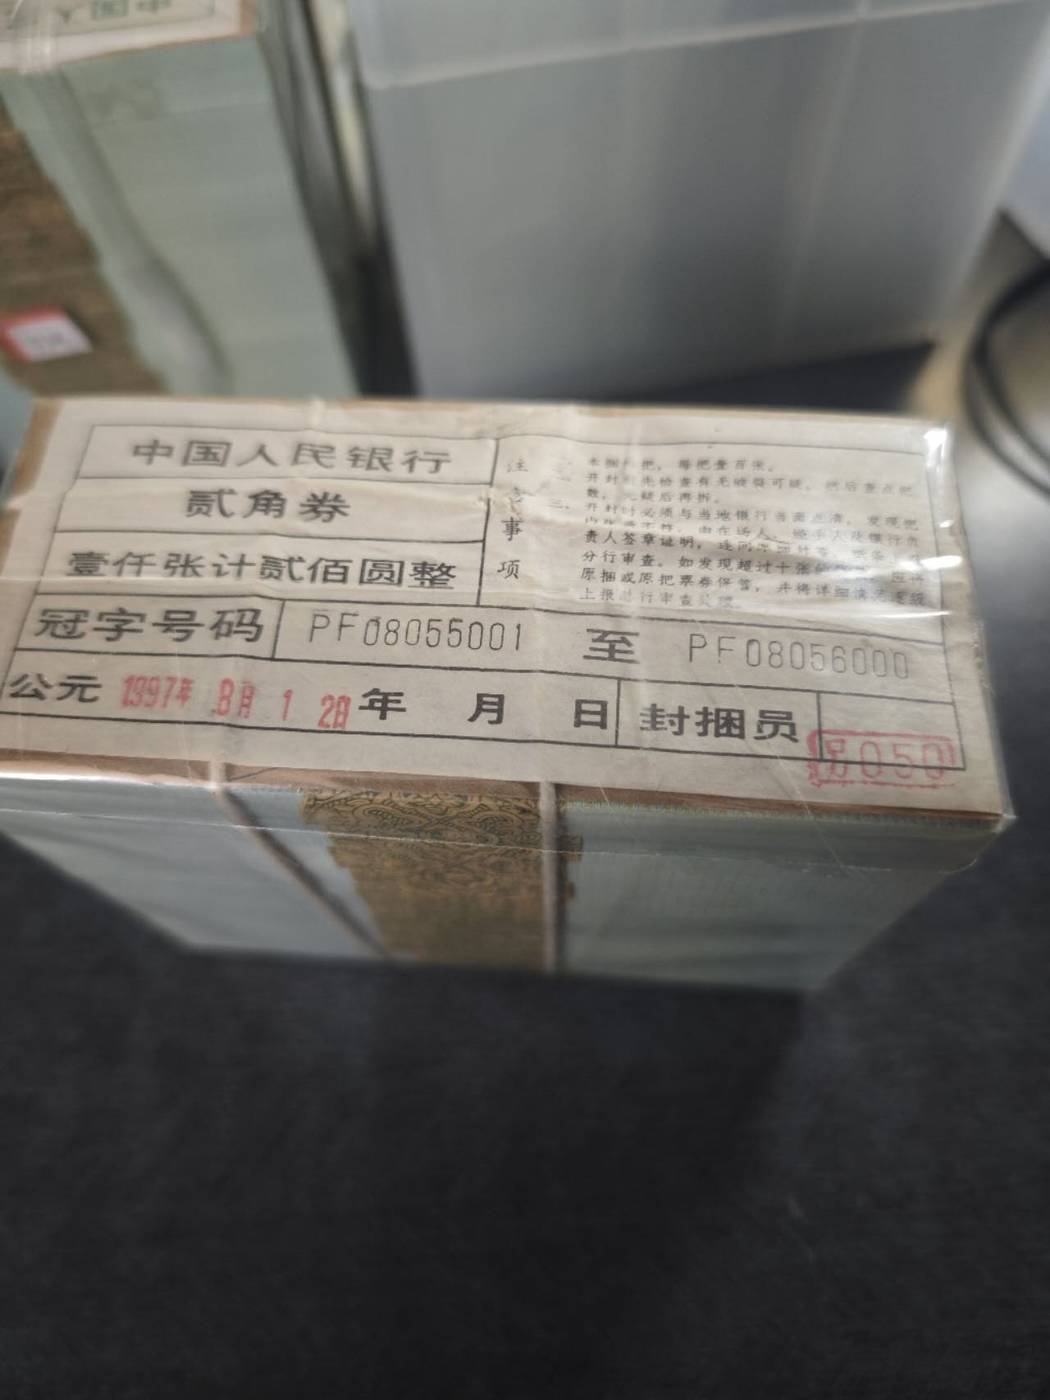 中国人民银行
贰角券
壹仟张计贰佰圆整
冠字号码 PF08055001 至 PF08056000
公元 1997年 8月 1 2日 年 月 日 封捆员
8050
注 事项
本捆 把，每把壹百张。
开封 先检查有无破裂可疑，然后查点把
数，无疑后再拆。
开封时必须与当地银行 点清，发现把
内 不符，由在场人、经手人及银行负
责人签章证明，连同
分行审查。如发现超过十张
原捆或原把票券保管，并将详细情况逐级
上报总行审查处理。
中国人